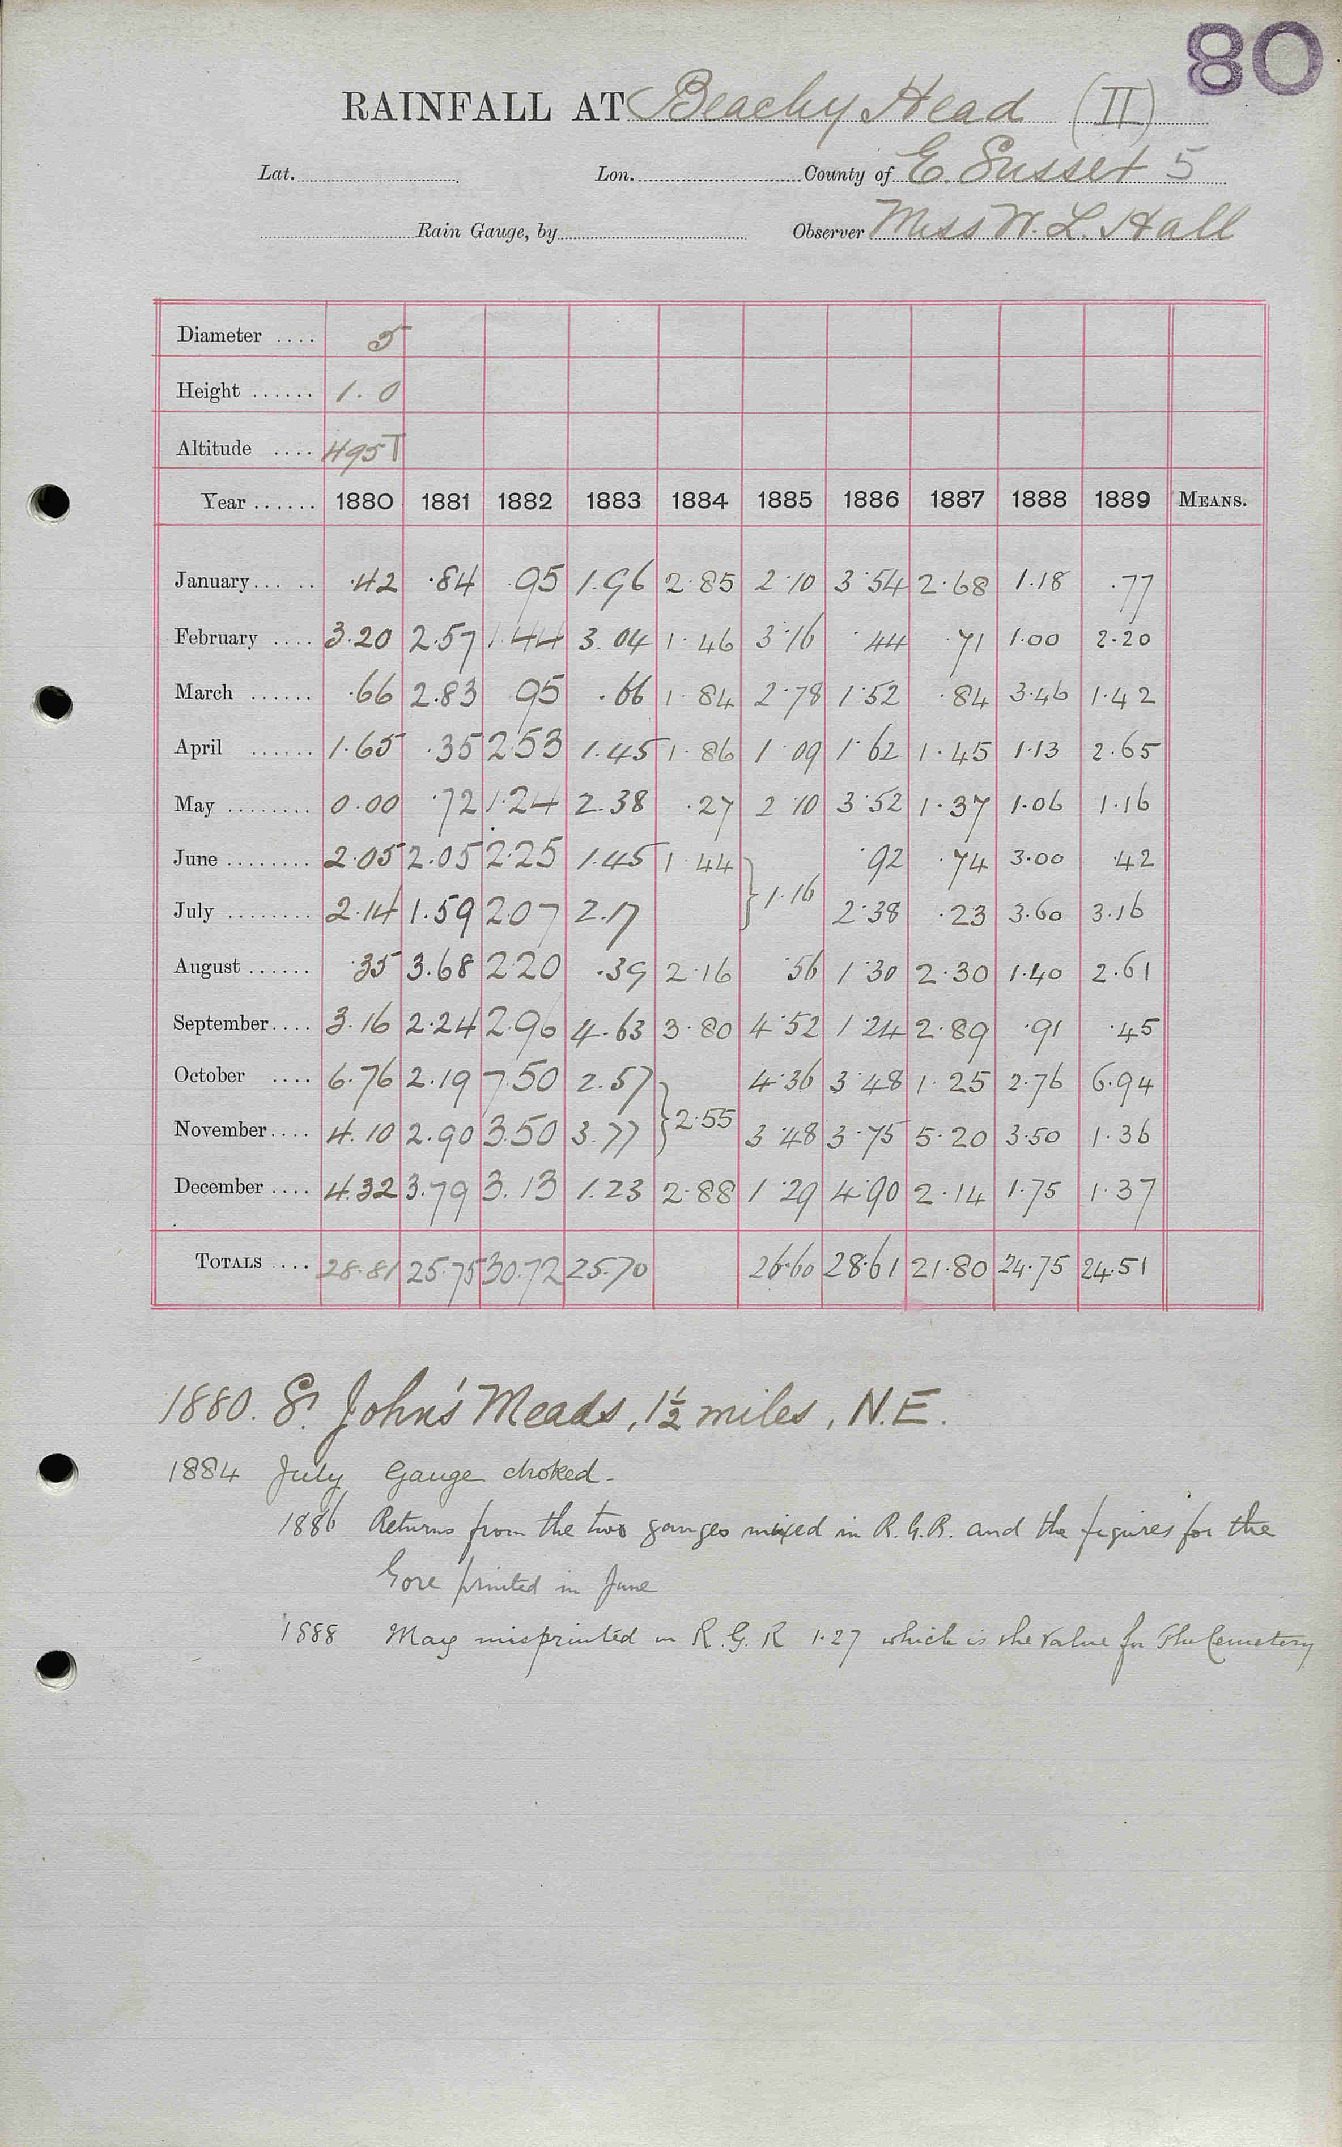 80
RAINFALL AT Beachy Head (II)
Lat. Lon. County of E. Sussex 5
Rain Gauge, by Observer Miss W. L. Hall
Diameter .... 5
Height ...... 1.0
Altitude .... 495T
Year ...... 1880 1881 1882 1883 1884 1885 1886 1887 1888 1889 MEANS.
January... .. .42 .84 .95 1.96 2.85 2.10 3.54 2.68 1.18 .77
February .... 3.20 2.57 1.44 3.04 1.46 3.16 .44 .71 1.00 2.20
March ...... .66 2.83 .95 .66 1.84 2.78 1.52 .84 3.46 1.42
April ...... 1.65 .35 2.53 1.45 1.86 1.09 1.62 1.45 1.13 2.65
May ........ 0.00 .72 1.24 2.38 .27 2.10 3.52 1.37 1.06 1.16
June ........ 2.05 2.05 2.25 1.45 1.44 } .92 .74 3.00 .42
1.16
July ........ 2.14 1.59 2.07 2.17 2.38 .23 3.60 3.16
August ...... .35 3.68 2.20 .39 2.16 .56 1.30 2.30 1.40 2.61
September.... 3.16 2.24 2.96 4.63 3.80 4.52 1.24 2.89 .91 .45
October .... 6.76 2.19 7.50 2.57 } 4.36 3.48 1.25 2.76 6.94
2.55
November.... 4.10 2.90 3.50 3.77 3.48 3.75 5.20 3.50 1.36
December .... 4.32 3.79 3.13 1.23 2.88 1.29 4.90 2.14 1.75 1.37
TOTALS .... 28.81 25.75 30.72 25.70 26.60 28.61 21.80 24.75 24.51
1880. St. John's Meads, 1½ miles, N.E.
1884 July Gauge choked.
1886 Returns from the two gauges mixed in R.G.R. and the figures for the
Gore printed in June
1888 May misprinted in R.G.R 1.27 which is the value for The Cemetery